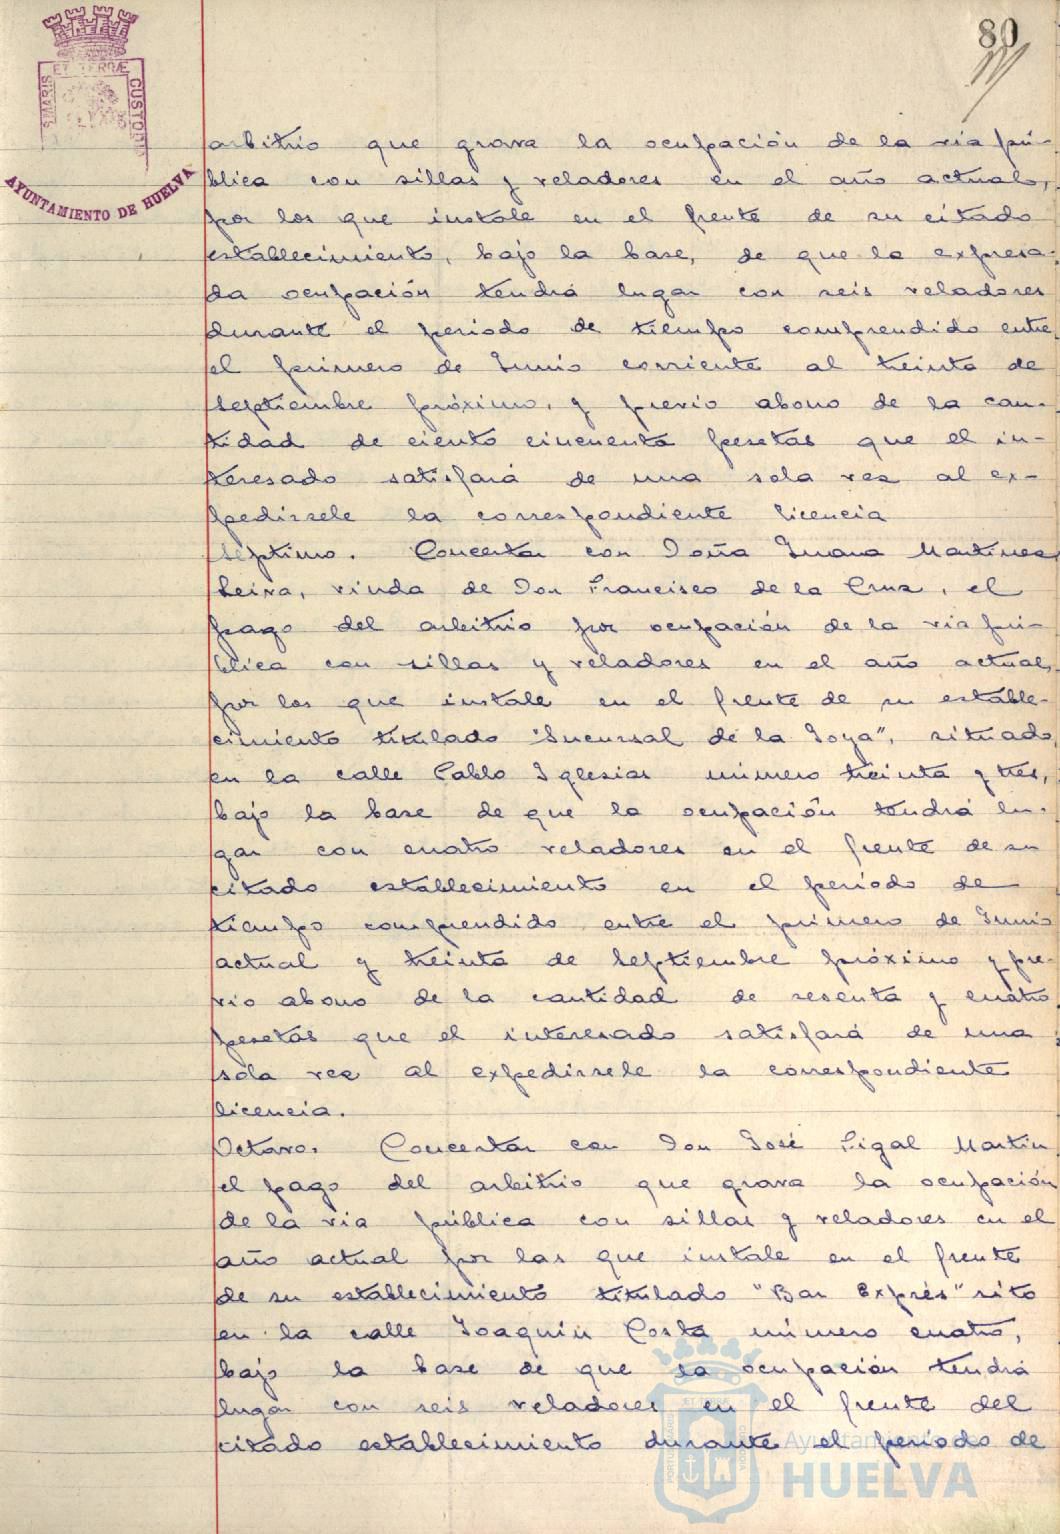 80
PORTUS MARIS ET TERRÆ CUSTODIA
AYUNTAMIENTO DE HUELVA
arbitrio que grava la ocupación de la via pú-
blica con sillas y veladores en el año actual,
por los que instale en el frente de su citado
establecimiento, bajo la base, de que la expresa-
da ocupación tendrá lugar con seis veladores
durante el periodo de tiempo comprendido entre
el primero de Junio corriente al treinta de
Septiembre próximo, y previo abono de la can-
tidad de ciento cincuenta pesetas que el in-
teresado satisfará de una sola vez al ex-
pedirsele la correspondiente licencia
Séptimo. Concertar con Doña Juana Martinez
Leiva, viuda de Don Francisco de la Cruz, el
pago del arbitrio por ocupación de la via pú-
blica con sillas y veladores en el año actual,
por los que instale en el frente de su estable-
cimiento titulado "Sucursal de la Joya", situado
en la calle Pablo Iglesias número treinta y tres,
bajo la base de que la ocupación tendrá lu-
gar con cuatro veladores en el frente de su
citado establecimiento en el periodo de
tiempo comprendido entre el primero de Junio
actual y treinta de Septiembre próximo y pre-
vio abono de la cantidad de sesenta y cuatro
pesetas que el interesado satisfará de una
sola vez al expedirsele la correspondiente
licencia.
Octavo. Concertar con Don José Pigal Martin
el pago del arbitrio que grava la ocupación
de la via pública con sillas y veladores en el
año actual por las que instale en el frente
de su establecimiento titulado "Bar Exprés" sito
en la calle Joaquin Costa número cuatro,
bajo la base de que la ocupación tendrá
lugar con seis veladores en el frente del
citado establecimiento durante el periodo de
Ayuntamiento de
HUELVA